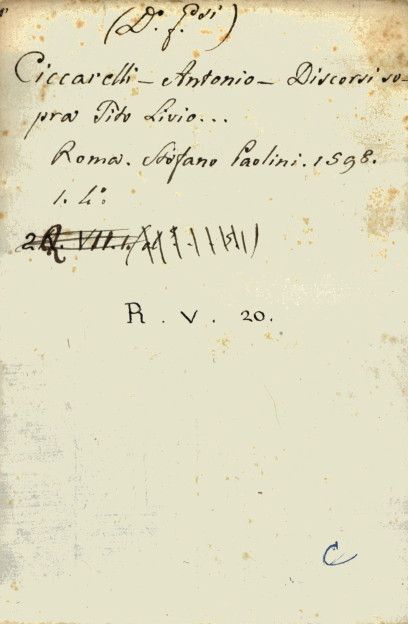 (D. f. Gsi)
Ciccarelli - Antonio - Discorsi so=
pra Tito Livio...
Roma. Stefano Paolini. 1598.
1. 4°
R. V. 20.
C